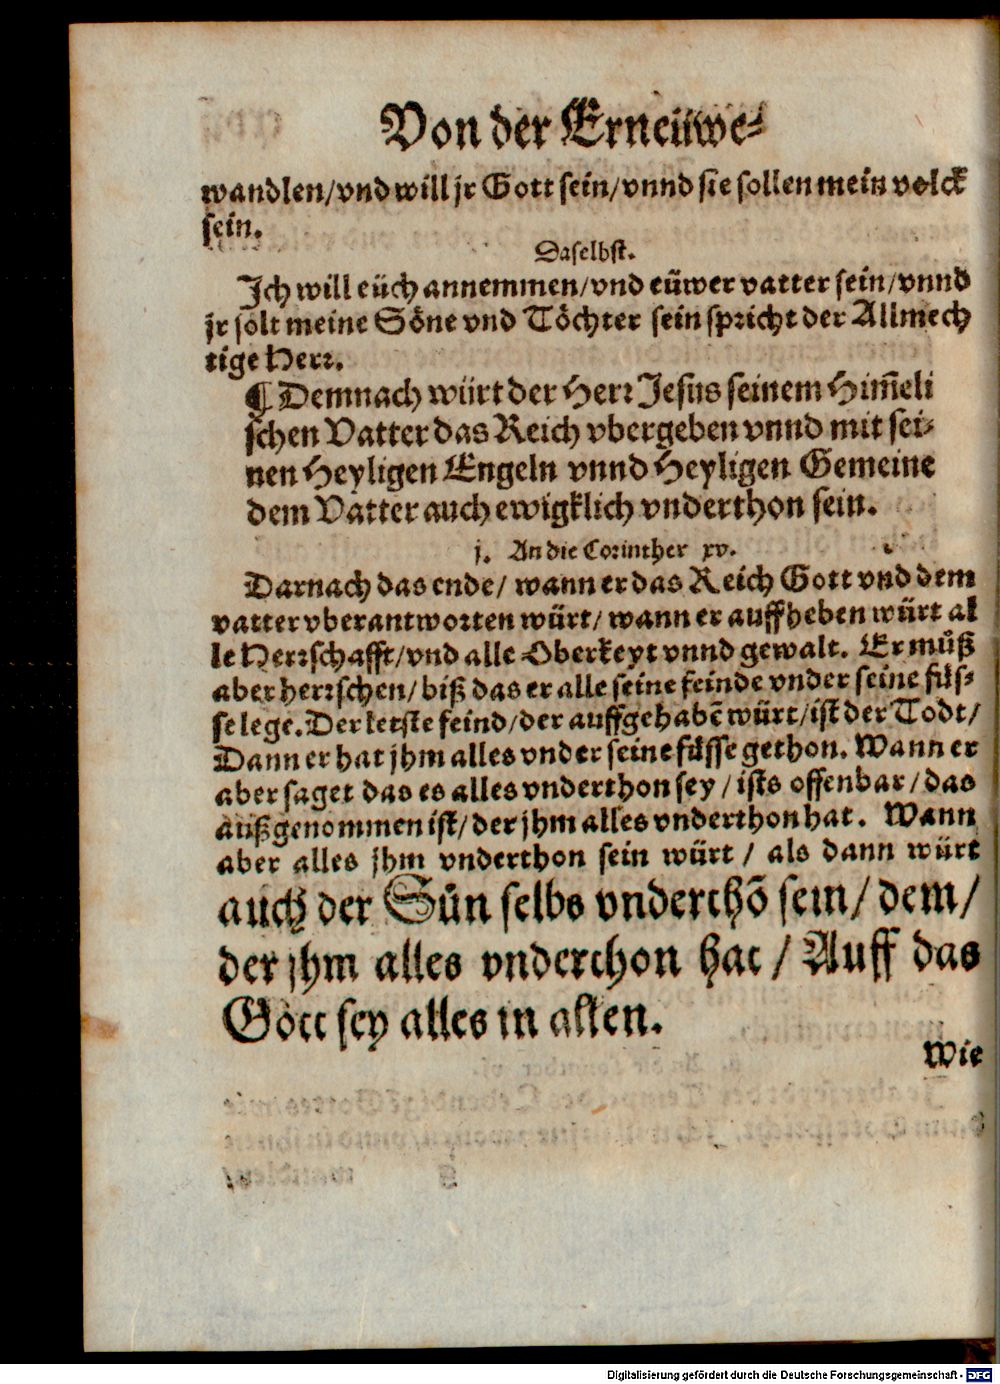 Von der Erneüwe⸗
wandlen/vnd will jr Gott sein/vnnd sie sollen mein volck
sein.
Daselbst.
Jch will eüch annemmen/vnd eüwer vatter sein/vnnd
jr solt meine Söne vnd Töchter sein spricht der Allmech
tige Herr.
¶ Demnach würt der Herr Jesus seinem Him̃eli
schen Vatter das Reich vbergeben vnnd mit sei⸗
nen Heyligen Engeln vnnd Heyligen Gemeine
dem Vatter auch ewigklich vnderthon sein.
j. An die Corinther xv.
Darnach das ende/ wann er das Reich Gott vnd dem
vatter vberantworten würt/ wann er auffheben würt al
le Herrschafft/vnd alle Oberkeyt vnnd gewalt. Er můß
aber herrschen/ biß das er alle seine feinde vnder seine füs⸗
se lege. Der letste feind/der auffgehabẽ würt/ist der Todt/
Dann er hat jhm alles vnder seine füsse gethon. Wann er
aber saget das es alles vnderthon sey / ists offenbar/das
außgenommen ist/ der jhm alles vnderthon hat. Wann
aber alles jhm vnderthon sein würt / als dann würt
auch der Sůn selbs vnderthõ sein/ dem/
der jhm alles vnderthon hat / Auff das
Gott sey alles in allen.
Wie
Digitalisierung gefördert durch die Deutsche Forschungsgemeinschaft - DFG